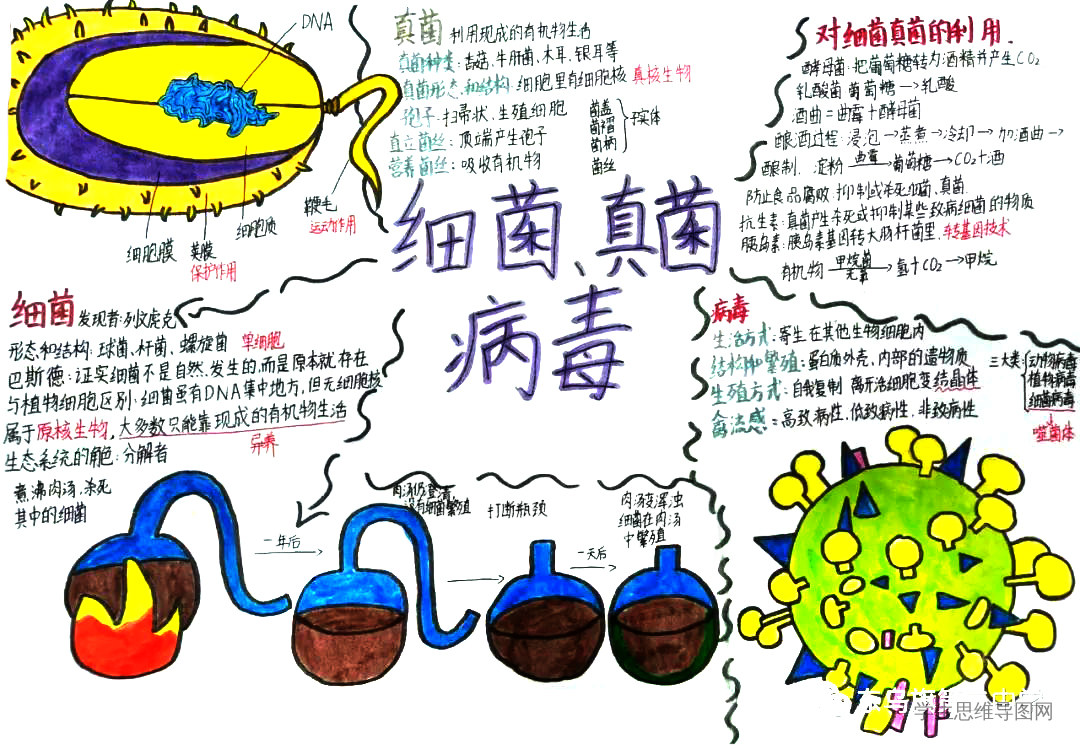 DNA
细胞膜
荚膜
保护作用
细胞质
鞭毛
运动作用
真菌 利用现成的有机物生活
真菌种类:击菇、牛肝菌、木耳、银耳等
真菌形态和结构:细胞里有细胞核 真核生物
孢子:扫帚状、生殖细胞
直立菌丝:顶端产生孢子
营养菌丝:吸收有机物
菌盖
菌褶
菌柄
子实体
菌丝
对细菌真菌的利用.
酵母菌:把葡萄糖转为酒精并产生CO2
乳酸菌 葡萄糖→乳酸
酒曲=曲霉+酵母菌
酿酒过程:浸泡→蒸煮→冷却→加酒曲→
酿制. 淀粉 曲霉→葡萄糖→CO2+酒
防止食品腐败:抑制或杀死细菌、真菌.
抗生素:真菌产生杀死或抑制某些致病细菌的物质
胰岛素:胰岛素基因转大肠杆菌里、转基因技术
有机物 甲烷菌 无氧→氢+CO2→甲烷
细菌、真菌
病毒
细菌 发现者:列文虎克
形态和结构:球菌、杆菌、螺旋菌 单细胞
巴斯德:证实细菌不是自然发生的,而是原本就存在
与植物细胞区别:细菌虽有DNA集中地方,但无细胞核
属于原核生物,大多数只能靠现成的有机物生活
异养
生态系统的角色:分解者
煮沸肉汤,杀死
其中的细菌
一年后
肉汤仍澄清,
没有细菌繁殖
打断瓶颈
一天后
肉汤变浑浊
细菌在肉汤
中繁殖
病毒
生活方式:寄生在其他生物细胞内
结构和繁殖:蛋白质外壳、内部的遗物质
生殖方式:自我复制 离开活细胞变结晶体
禽流感=高致病性、低致病性、非致病性
三大类
动物病毒
植物病毒
细菌病毒
噬菌体
思维导图网